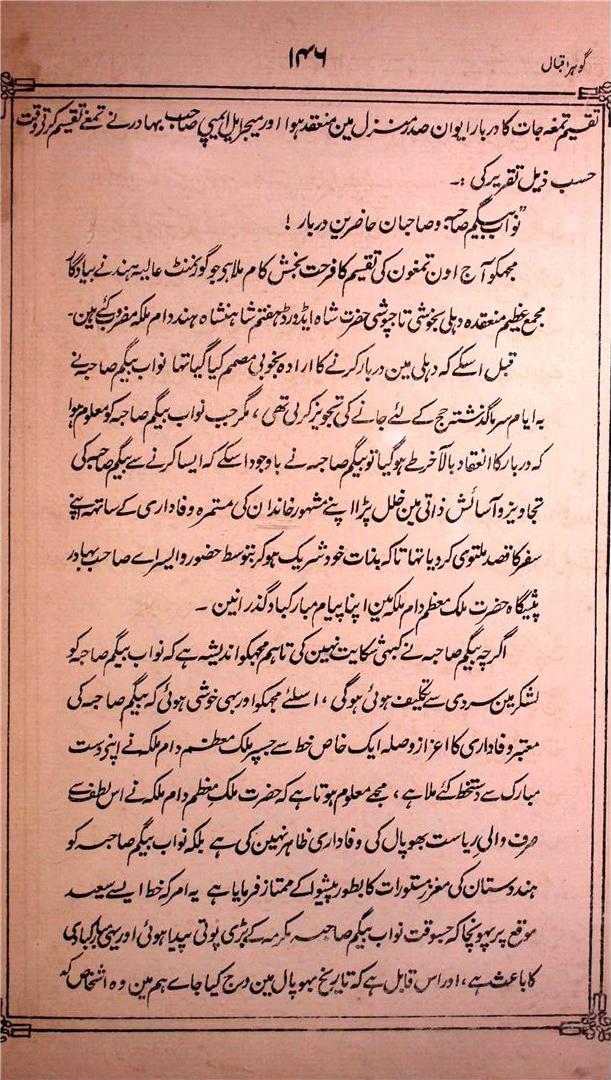 ۱۴۶
گوہر اقبال
تقسیم تمغہ جات کا دربار ایوان صدر منزل مین منعقد ہوا اور میجر ایل ایمپی صاحب بہادر نے تمغے تقسیم کرتے وقت
حسب ذیل تقریر کی :۔
"نواب بیگم صاحبہ و صاحبان حاضرین دربار !
مجھکو آج اون تمغون کی تقسیم کا فرحت بخش کام ملا ہے جو گورنمنٹ عالیہ ہند نے بیادگار
مجمع عظیم منعقدہ دہلی بخوشی تاجپوشی حضرت شاہ ایڈورڈ ہفتم شاہنشاہ ہند دام ملکہ مضروب کئے ہین۔
قبل اسکے کہ دہلی مین دربار کرنے کا ارادہ بخوبی مصمم کیا گیا تھا نواب بیگم صاحبہ نے
بہ ایام سرما گذشتہ حج کے لئے جانے کی تجویز کر لی تھی ، مگر جب نواب بیگم صاحبہ کو معلوم ہوا
کہ دربار کا انعقاد بالآخر طے ہو گیا تو بیگم صاحبہ نے باوجود اسکے کہ ایسا کرنے سے بیگم صاحبہ کی
تجاویز و آسائش ذاتی مین خلل پڑا اپنے مشہور خاندان کی مستمرہ وفاداری کے ساتھ اپنے
سفر کا قصد ملتوی کر دیا تھا تاکہ بذات خود شریک ہو کر بتوسط حضور وایسراے صاحب بہادر
پیشگاہ حضرت ملک معظم دام ملکہ مین اپنا پیام مبارکباد گذرانین ۔
اگرچہ بیگم صاحبہ نے کبھی شکایت نہین کی تاہم مجھکو اندیشہ ہے کہ نواب بیگم صاحبہ کو
لشکر مین سردی سے تکلیف ہوئی ہوگی ، اسلئے مجھکو اور بھی خوشی ہوئی کہ بیگم صاحبہ کی
معتبر وفاداری کا اعزاز و صلہ ایک خاص خط سے جسپر ملک معظم دام ملکہ نے اپنے دست
مبارک سے دستخط کئے ملا ہے ، مجھے معلوم ہوتا ہے کہ حضرت ملک معظم دام ملکہ نے اس لطف سے
صرف والیِ ریاست بھوپال کی وفاداری ظاہر نہین کی ہے بلکہ نواب بیگم صاحبہ کو
ہندوستان کی معزز مستورات کا بطور پیشوا کے ممتاز فرمایا ہے یہ امر کہ خط ایسے سعید
موقع پر پہونچا کہ جسوقت نواب بیگم صاحبہ مکرمہ کے بڑی پوتی پیدا ہوئی اور بھی مبارکبادی
کا باعث ہے ، اور اس قابل ہے کہ تاریخ بھوپال مین درج کیا جاے ہم مین وہ اشخاص کہ